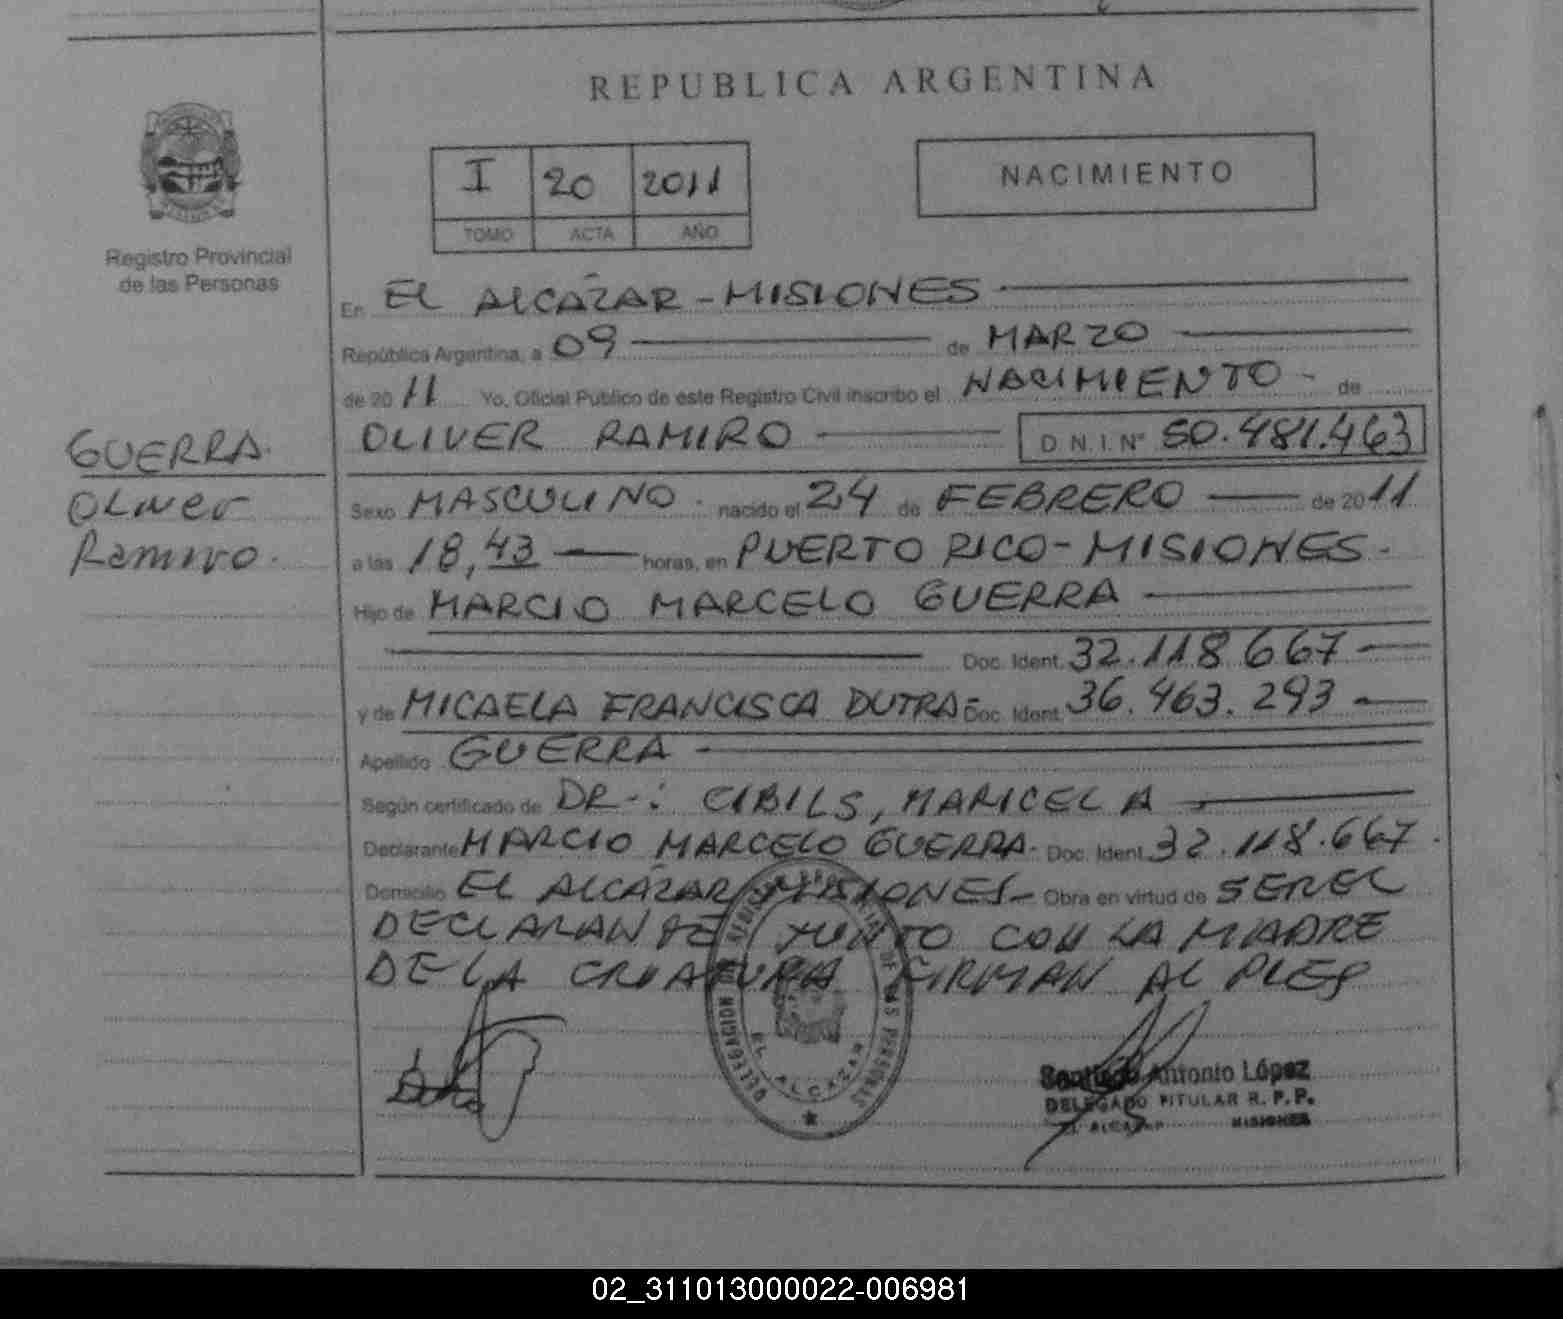 REPUBLICA ARGENTINA
I 20 2011
TOMO ACTA AÑO
NACIMIENTO
Registro Provincial
de las Personas
En EL ALCAZAR - MISIONES
República Argentina, a 09 de MARZO
de 2011 Yo, Oficial Público de este Registro Civil inscribo el NACIMIENTO - de
OLIVER RAMIRO D.N.I. Nº 50.481.463
GUERRA
Oliver
Ramiro.
Sexo MASCULINO. nacido el 24 de FEBRERO de 2011
a las 18,43 horas, en PUERTO RICO - MISIONES.
Hijo de MARCIO MARCELO GUERRA
Doc. Ident. 32.118.667
y de MICAELA FRANCISCA DUTRA- Doc. Ident. 36.463.293
Apellido GUERRA
Según certificado de DR-: CIBILS, MARICELA
Declarante MARCIO MARCELO GUERRA. Doc. Ident. 32.118.667.
Domicilio EL ALCAZAR MISIONES- Obra en virtud de SER EL
DECLARANTE JUNTO CON LA MADRE
DE LA CRIATURA FIRMAN AL PIE
DELEGACION DE LAS PERSONAS
EL ALCAZAR
Santiago Antonio López
DELEGADO TITULAR R. P. P.
EL ALCAZAR MISIONES
02_311013000022-006981